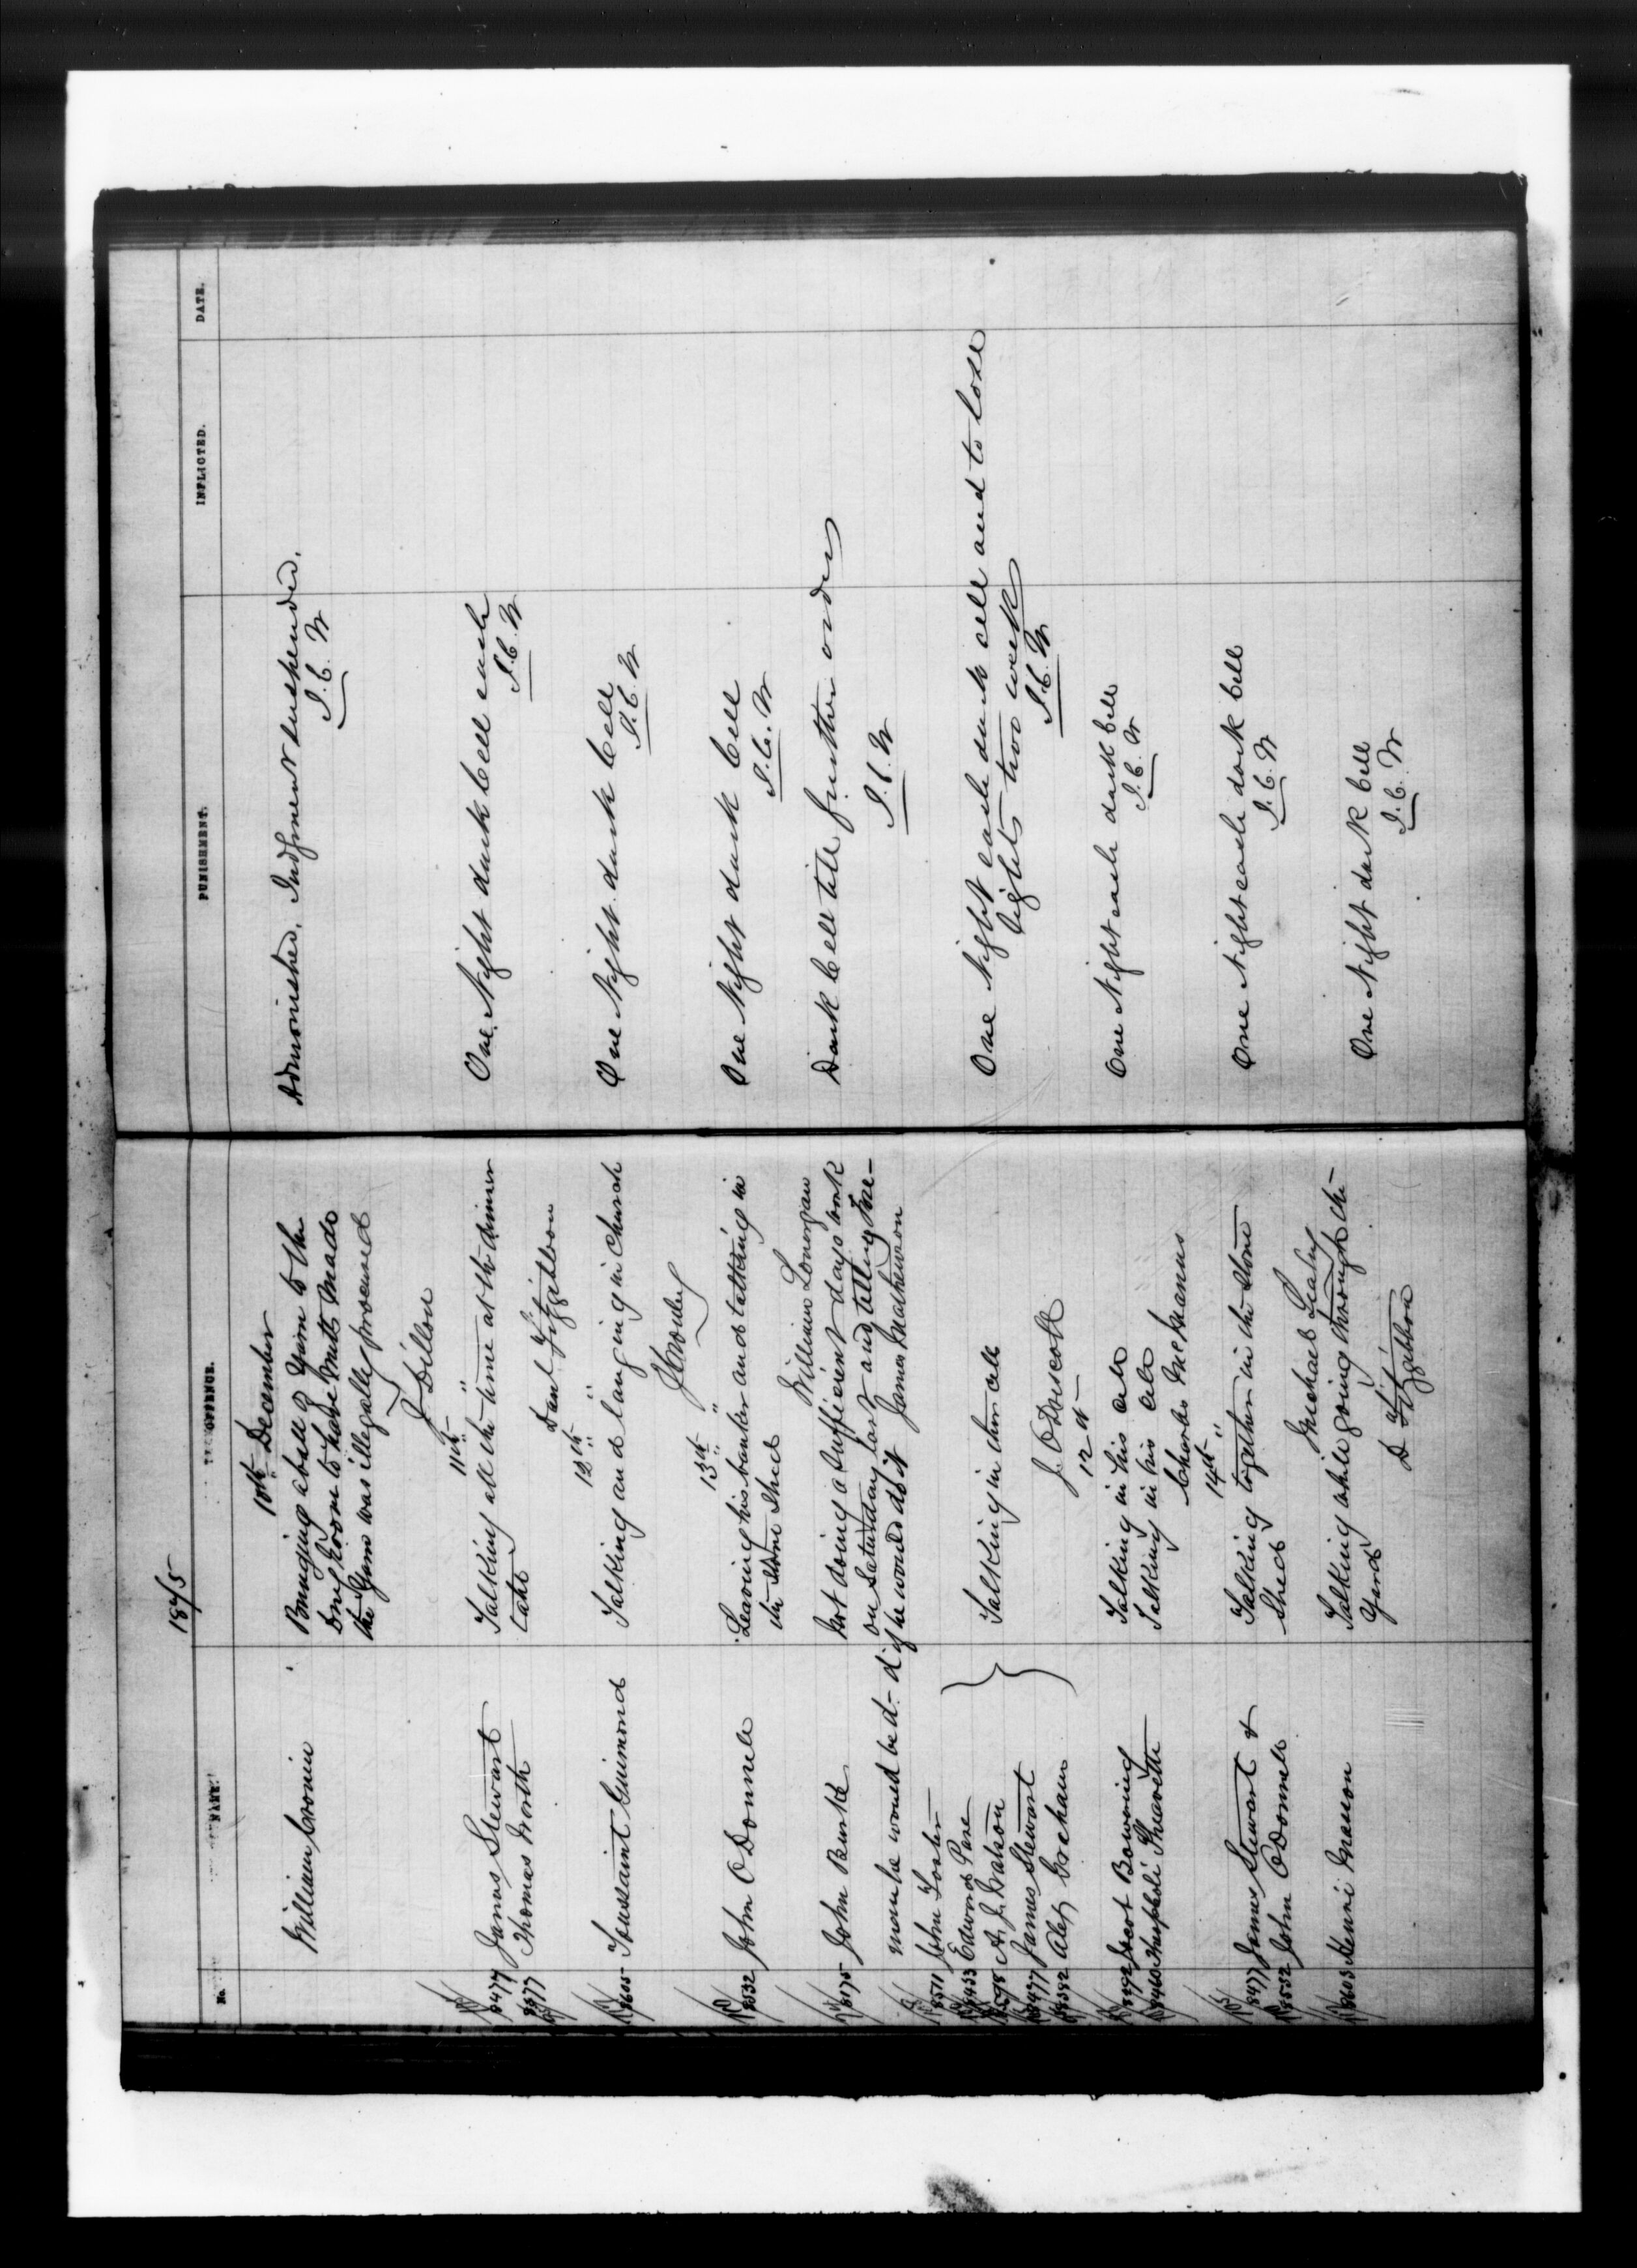 1875
No. NAME. OFFENCE. PUNISHMENT. INFLICTED. DATE.
10th December
William Cronin Bringing a ball of Yarn to the Admonished. Judgment suspended.
to have Mitts made J. C. W
the Yarn was illegally procured
Dillon
11th "
8477 James Stewart Talking all the time at the dinner One Night dark Cell each
Thomas North Table J. C. W
Danl Fitzgibbon
12th "
Toussaint Guimond Talking and laughing in Church One Night dark Cell
J. C. W
13th "
8532 John O Donnell Leaving his banker and talking in One Night dark Cell
the Stone Shed J. C. W
William Lonergan
8175 John Burke Not doing a sufficient days work Dark Cell till further orders
on Saturday last and telling me - J. C. W
man he would be d - d if he would do it James Matheson
8511 John Foster
8433 Edward Pare
A. J. Watson Talking in their cells One Night each dark cell and to lose
8477 James Stewart lights two weeks
Alex Graham J. C. W
J. O Driscoll
12th
Bowing Talking in his cell One Night each dark Cell
8460 Talking in his cell J. C. W
Charles McManus
14th "
8477 James Stewart & Talking together in the Stone One Night each dark Cell
8532 John O Donnell Shed J. C. W
Michael Leahy
Henri Masson Talking while going through the One Night dark Cell
Yard J. C. W
D Fitzgibbon